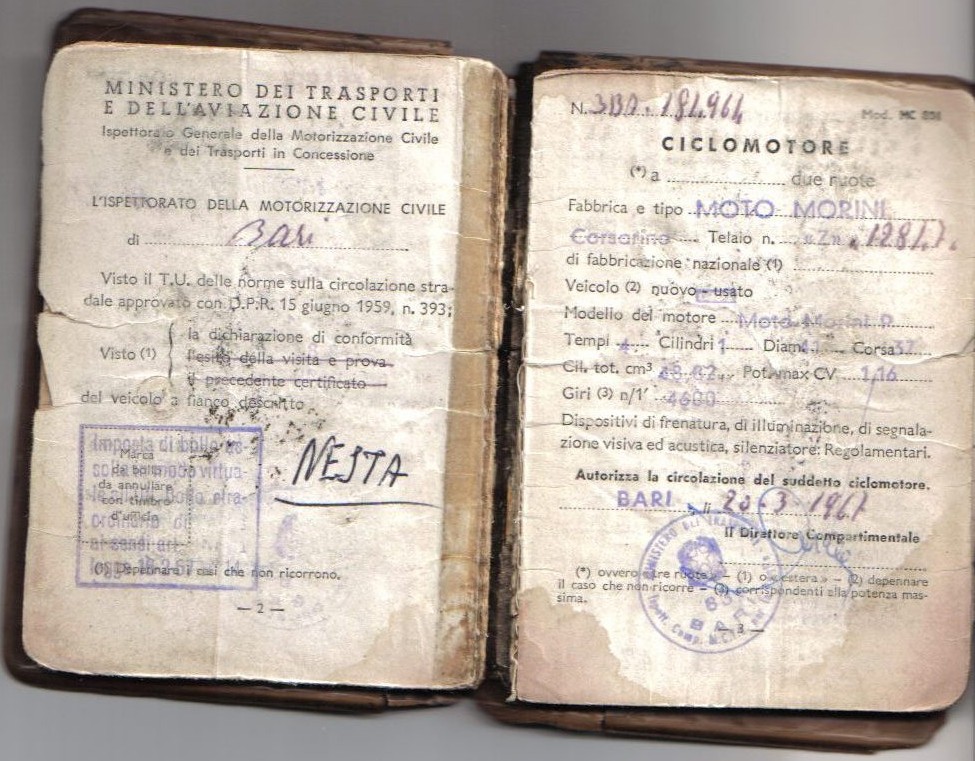 MINISTERO DEI TRASPORTI
E DELL'AVIAZIONE CIVILE
Ispettorato Generale della Motorizzazione Civile
e dei Trasporti in Concessione
L'ISPETTORATO DELLA MOTORIZZAZIONE CIVILE
di Bari
Visto il T.U. delle norme sulla circolazione stra-
dale approvato con D.P.R. 15 giugno 1959, n. 393;
Visto (1)
la dichiarazione di conformità
l'esito della visita e prova
il precedente certificato
del veicolo a fianco descritto
Imposta di bollo
Marca
da bollo
da annullare
con timbro
d'ufficio
NESTA
(1) Depennare i casi che non ricorrono.
— 2 —
N. 3BA. 184964
Mod. MC
CICLOMOTORE
(*) a due ruote
Fabbrica e tipo MOTO MORINI
Corsarino Telaio n. «Zn»
di fabbricazione nazionale (1)
Veicolo (2) nuovo - usato
Modello del motore Moto Morini P
Tempi 4 Cilindri 1 Diam 41 Corsa 37
Cil. tot. cm³ 48.82 Pot. max CV 1,16
Giri (3) n/1' 4600
Dispositivi di frenatura, di illuminazione, di segnala-
zione visiva ed acustica, silenziatore: Regolamentari.
Autorizza la circolazione del suddetto ciclomotore.
BARI, lì 20-3-1967
Il Direttore Compartimentale
(*) ovvero «tre ruote» – (1) o «estera» – (2) depennare
il caso che non ricorre – (3) corrispondenti alla potenza mas-
sima.
— 3 —